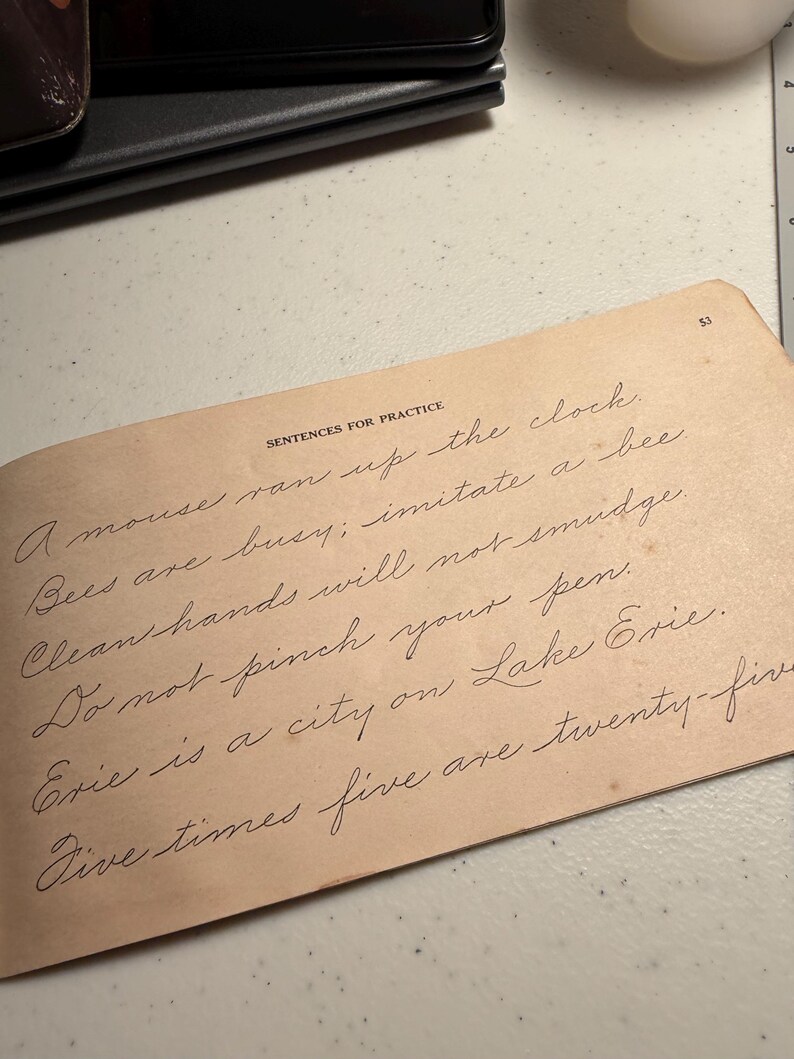 53
SENTENCES FOR PRACTICE
A mouse ran up the clock.
Bees are busy; imitate a bee.
Clean hands will not smudge.
Do not pinch your pen.
Erie is a city on Lake Erie.
Five times five are twenty-five
4
5
6